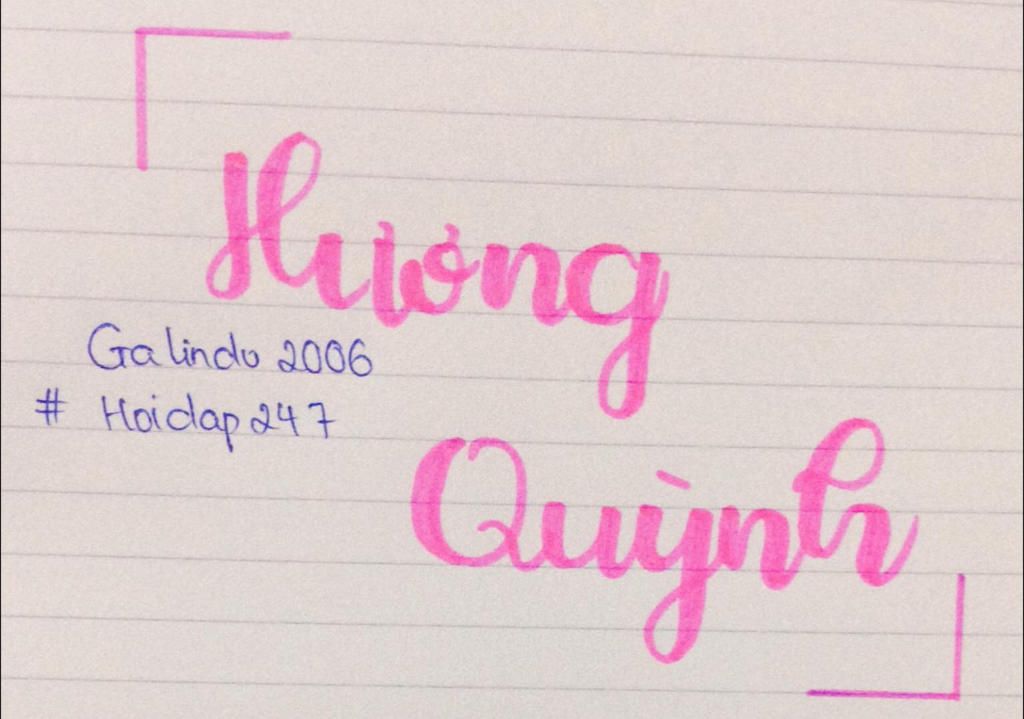 Hương
Galindo 2006
# Hoidap 247
Quỳnh